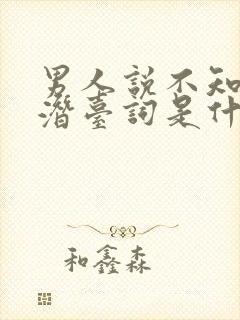 男人説不知
潛臺詞是什
和鑫森